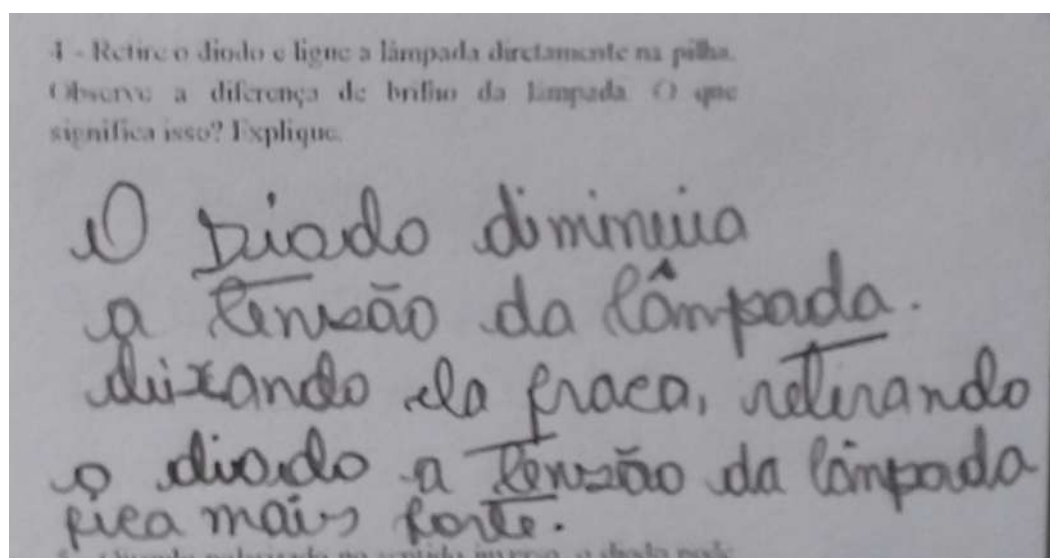 4 - Retire o diodo e ligue a lâmpada diretamente na pilha.
Observe a diferença de brilho da lâmpada. O que
significa isso? Explique.
O Diodo diminuia
a Tensão da lâmpada.
deixando ela fraca, retirando
o diodo a Tensão da lâmpada
fica mais forte.
5 - Quando polarizado no sentido inverso, o diodo pode